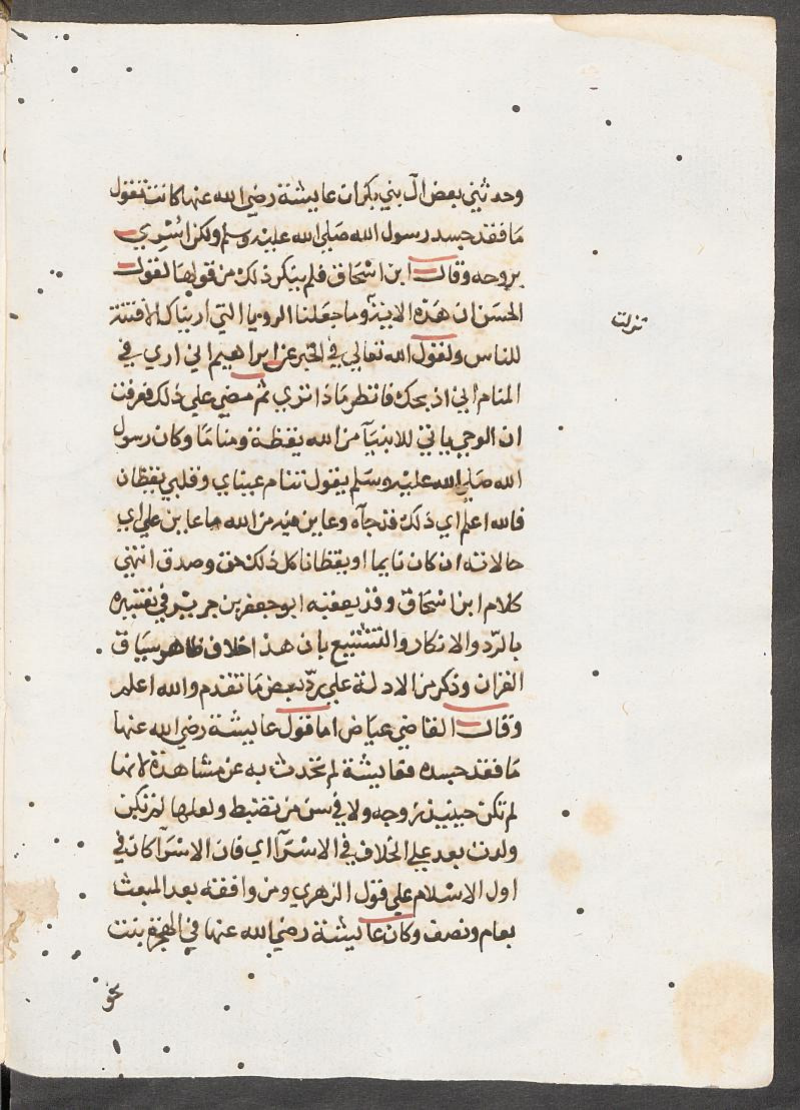 وحدثني بعض ال بني بكر ان عايشة رضي الله عنها كانت تقول
ما فقد جسد رسول الله صلي الله عليه وسلم ولكن اسري
بروحه وقال ابن اسحاق فلم ينكر ذلك من قولها لقول
الحسن ان هذه الاية وما جعلنا الرويا التي اريناك الا فتنة
نزلت
للناس ولقول الله تعالي في الخبر عن ابراهيم اني اري في
المنام اني اذبحك فانظر ماذا تري ثم مضي علي ذلك فعرفت
ان الوحي ياتي للانبيآ من الله يقظة ومناما وكان رسول
الله صلي الله عليه وسلم يقول تنام عيناي وقلبي يقظان
فالله اعلم اي ذلك قد جآه وعاين فيه من الله ما عاين علي اي
حالاته ان كان نايما او يقظانا كل ذلك حق وصدق انتهي
كلام ابن اسحاق وقد تعقبه ابو جعفر بن جرير في تفسيره
بالرد والانكار والتشنيع بان هذا خلاف ظاهر سياق
القران وذكر من الادلة علي رد بعض ما تقدم والله اعلم
وقال القاضي عياض اما قول عايشة رضي الله عنها
ما فقد جسده فعايشة لم تحدث به عن مشاهدة لانها
لم تكن حينيذ زوجه ولا في سن من يضبط ولعلها لم تكن
ولدت بعد علي الخلاف في الاسرآ اي فان الاسرآ كان في
اول الاسلام علي قول الزهري ومن وافقه بعد المبعث
بعام ونصف وكان عايشة رضي الله عنها في الهجرة بنت
نحو